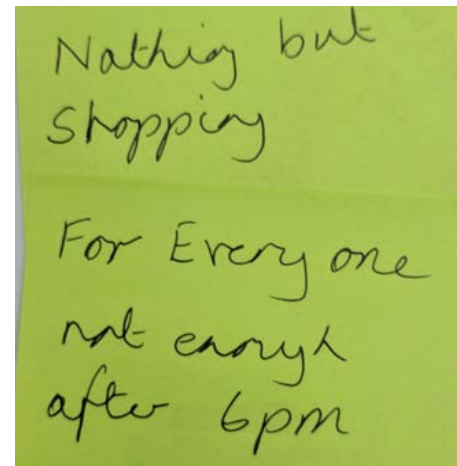 Nothing but
Shopping
For Every one
not enough
after 6pm